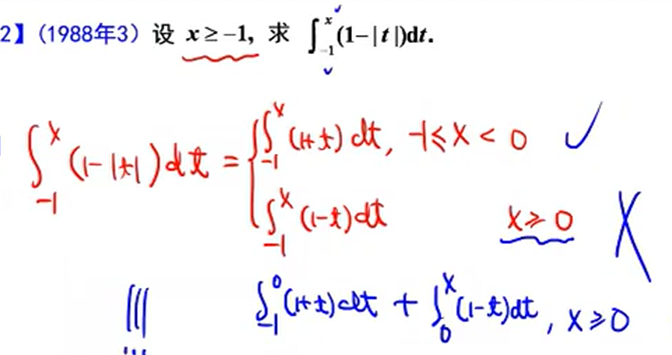 2】(1988年3) 设 x≥-1, 求 ∫_{-1}^{x}(1-|t|)dt.
∫_{-1}^{x}(1-|t|)dt = { ∫_{-1}^{x}(1+t)dt, -1≤x<0 ✓
∫_{-1}^{x}(1-t)dt x≥0 ╳
∫_{-1}^{0}(1+t)dt + ∫_{0}^{x}(1-t)dt, x≥0